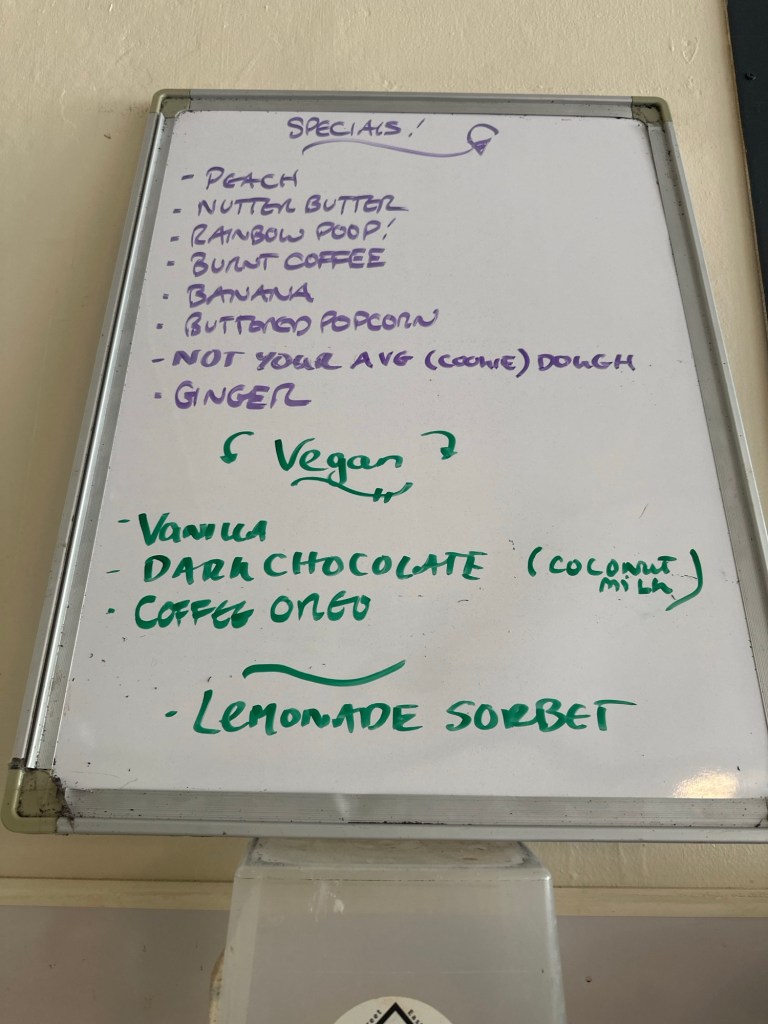 SPECIALS!
- PEACH
- NUTTER BUTTER
- RAINBOW POOP!
- BURNT COFFEE
- BANANA
- BUTTERED POPCORN
- NOT YOUR AVG (COOKIE) DOUGH
- GINGER
Vegan
- VANILLA
- DARK CHOCOLATE (COCONUT MILK)
- COFFEE OREO
- LEMONADE SORBET